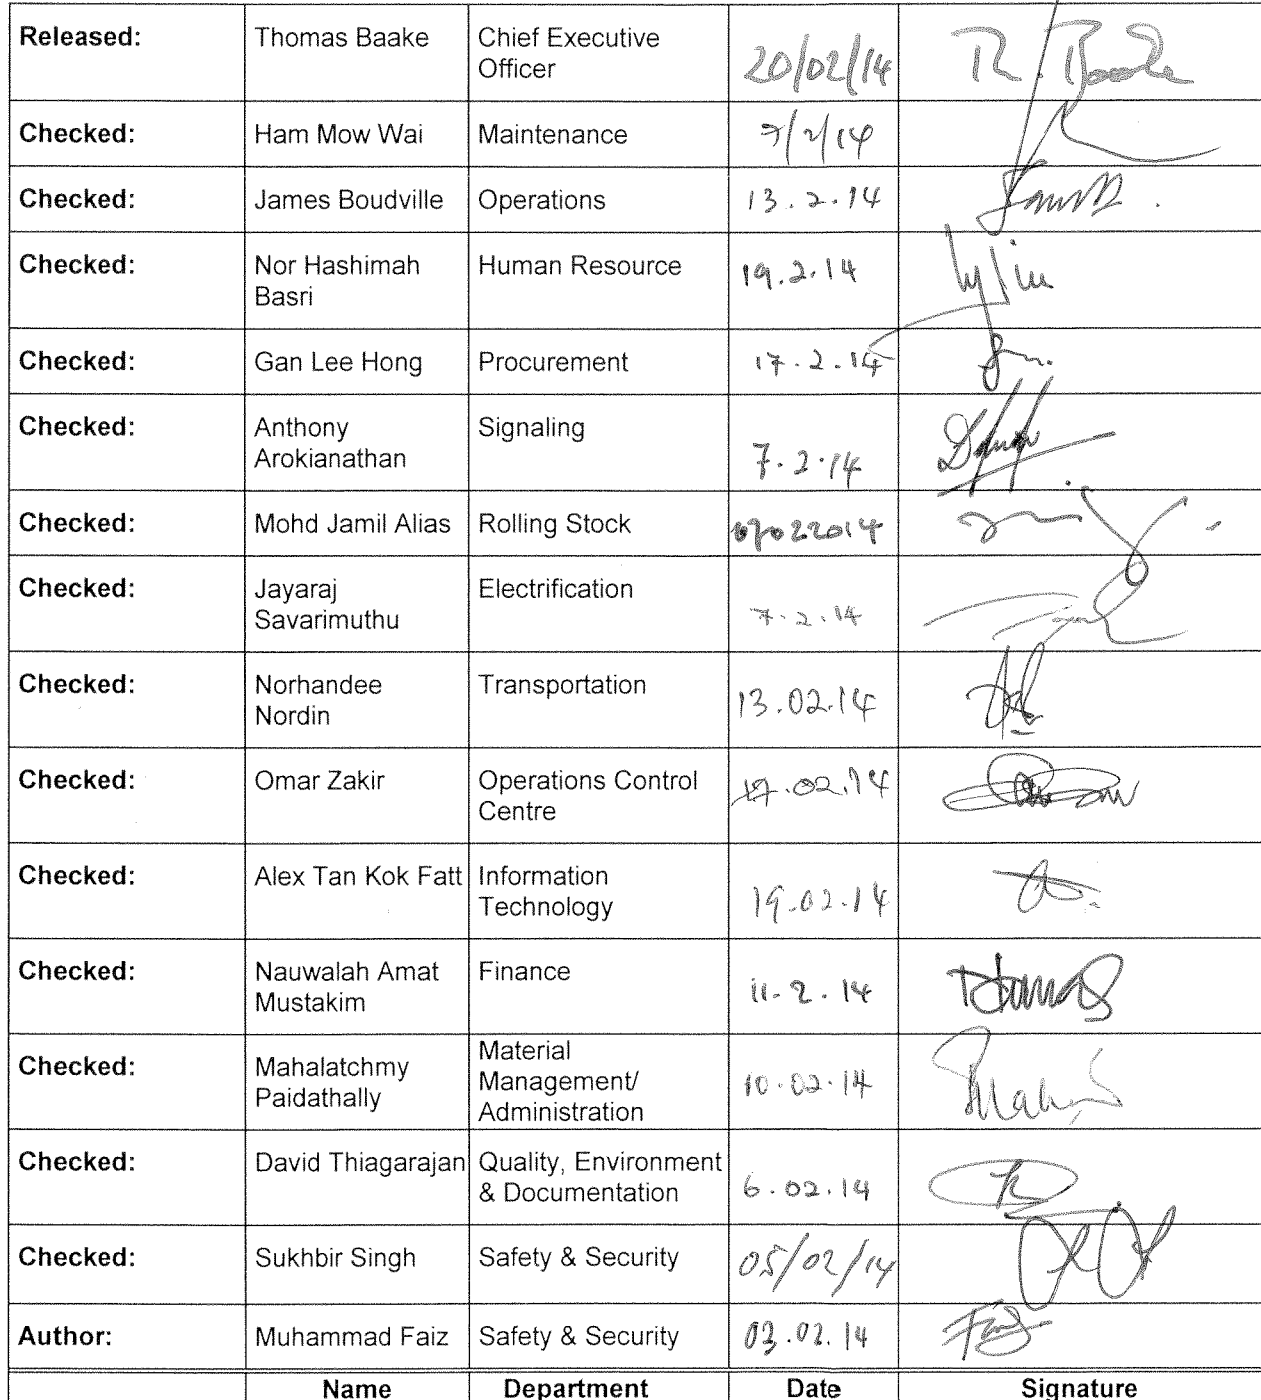 Released: Thomas Baake Chief Executive 20/02/14
Officer
Checked: Ham Mow Wai Maintenance 7/2/14
Checked: James Boudville Operations 13.2.14
Checked: Nor Hashimah Human Resource 19.2.14
Basri
Checked: Gan Lee Hong Procurement 17.2.14
Checked: Anthony Signaling
Arokianathan 7.2.14
Checked: Mohd Jamil Alias Rolling Stock
Checked: Jayaraj Electrification
Savarimuthu 7.2.14
Checked: Norhandee Transportation
Nordin 13.02.14
Checked: Omar Zakir Operations Control 17.02.14
Centre
Checked: Alex Tan Kok Fatt Information
Technology 19.02.14
Checked: Nauwalah Amat Finance
Mustakim 11.2.14
Checked: Mahalatchmy Material
Paidathally Management/ 10.02.14
Administration
Checked: David Thiagarajan Quality, Environment
& Documentation 6.02.14
Checked: Sukhbir Singh Safety & Security 05/02/14
Author: Muhammad Faiz Safety & Security 03.02.14
Name Department Date Signature